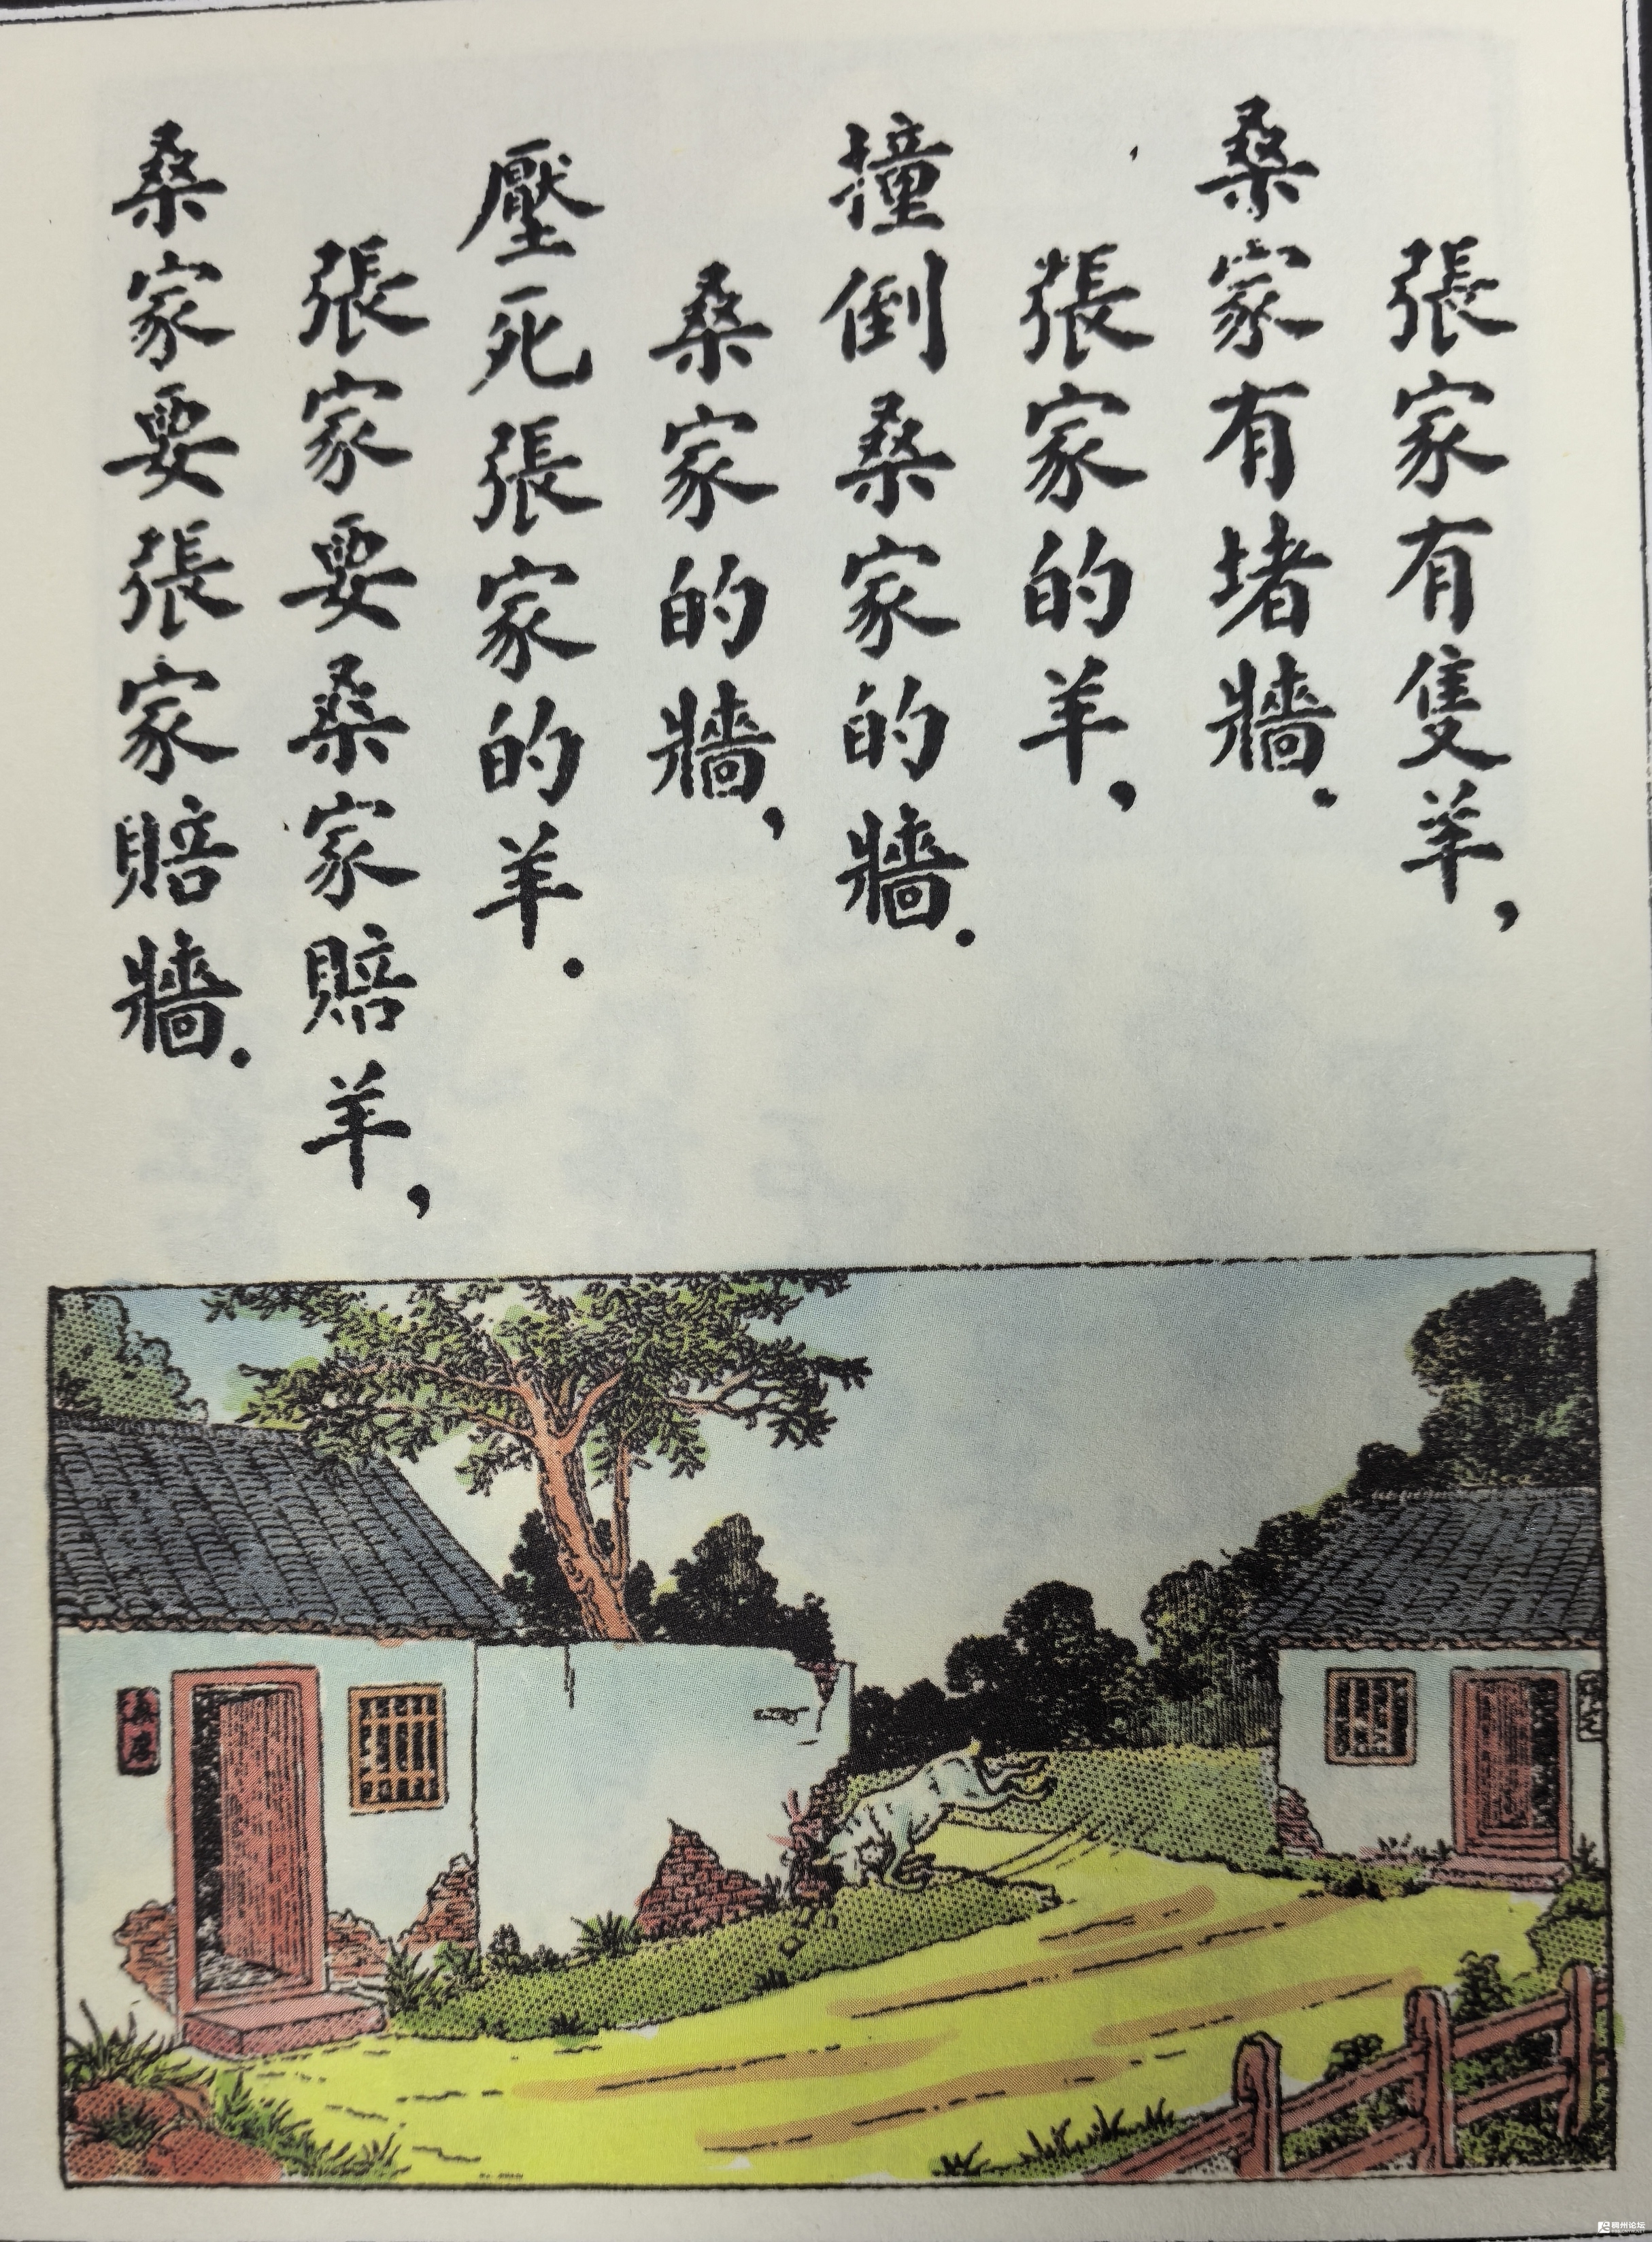 張家有隻羊，
桑家有堵牆．
張家的羊，
撞倒桑家的牆．
桑家的牆，
壓死張家的羊．
張家要桑家賠羊，
桑家要張家賠牆．
稠州论坛